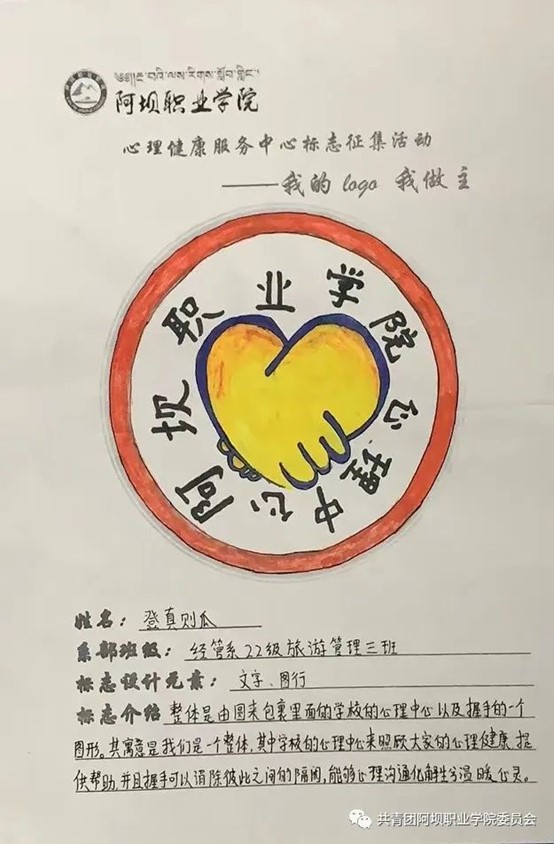 ༄༅། །རྔ་བའི་ལས་རིགས་སློབ་གླིང་།
阿坝职业学院
心理健康服务中心标志征集活动
——我的 logo 我做主
阿坝职业学院心理中心
姓名：登真则瓜
系部班级：经管系22级旅游管理三班
标志设计元素：文字、图行
标志介绍 整体是由圆来包裹里面的学校的心理中心以及握手的一个
图形。其寓意是我们是一个整体，其中学校的心理中心来照顾大家的心理健康，提
供帮助，并且握手可以消除彼此之间的隔阂，能够心理沟通化解 温暖心灵。
共青团阿坝职业学院委员会